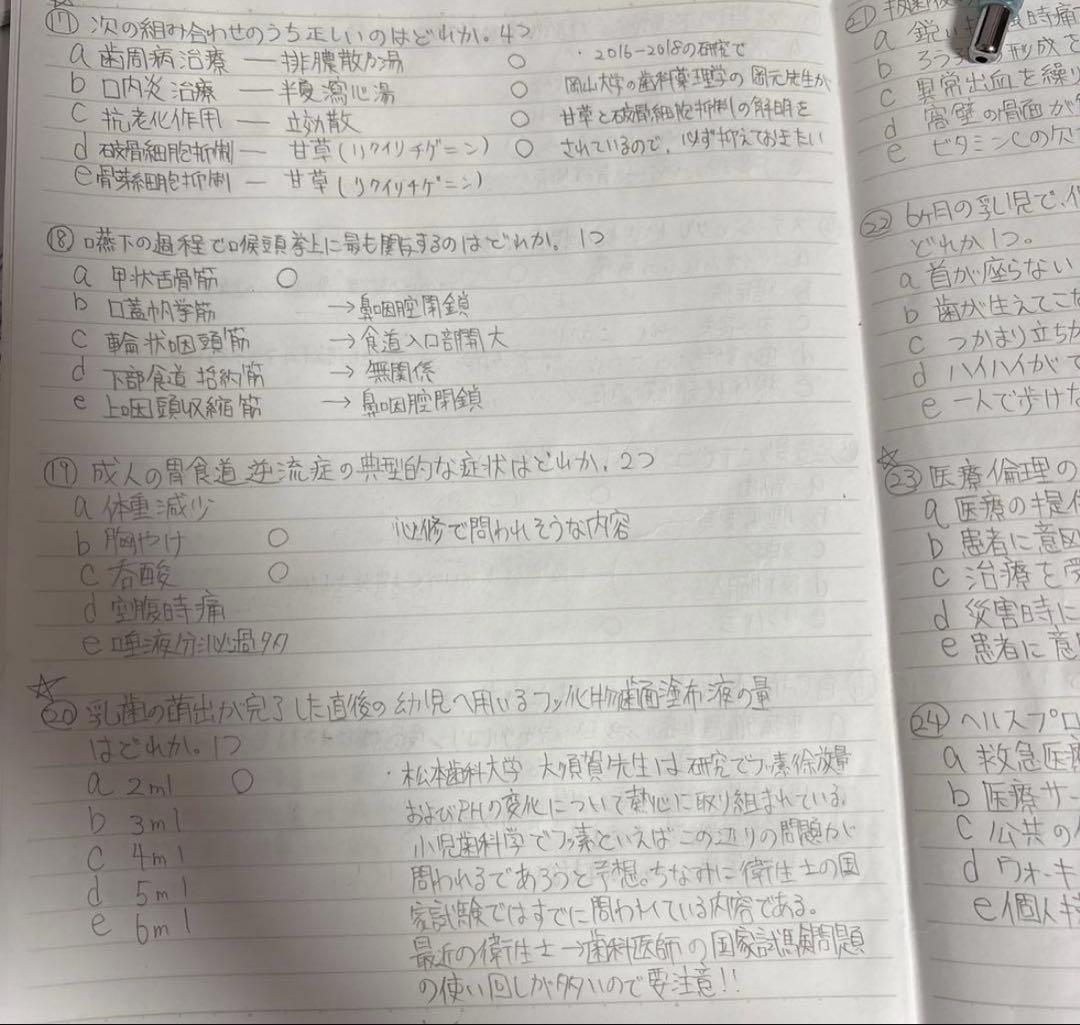 ⑰ 次の組み合わせのうち正しいのはどれか。4つ
a 歯周病治療 ― 排膿散及湯 ○
・2016-2018の研究で
b 口内炎治療 ― 半夏瀉心湯 ○
岡山大学の歯科薬理学の岡元先生が
c 抗老化作用 ― 立効散 ○
甘草と破骨細胞抑制の解明を
d 破骨細胞抑制 ― 甘草(リクイリチゲニン) ○
されているので、必ず抑えておきたい
e 骨芽細胞抑制 ― 甘草(リクイリチゲニン)
⑱ 嚥下の過程で喉頭挙上に最も関与するのはどれか。1つ
a 甲状舌骨筋 ○
b 口蓋帆挙筋 →鼻咽腔閉鎖
c 輪状咽頭筋 →食道入口部開大
d 下部食道括約筋 → 無関係
e 上咽頭収縮筋 → 鼻咽腔閉鎖
⑲ 成人の胃食道逆流症の典型的な症状はどれか。2つ
a 体重減少
b 胸やけ ○
必修で問われそうな内容
c 呑酸 ○
d 空腹時痛
e 唾液分泌過多
☆
⑳ 乳歯の萌出が完了した直後の幼児へ用いるフッ化物歯面塗布液の量
はどれか。1つ
a 2ml ○
b 3ml
c 4ml
d 5ml
e 6ml
・松本歯科大学 大須賀先生は研究でフッ素徐放量
およびPHの変化について熱心に取り組まれている。
小児歯科学でフッ素といえばこの辺りの問題が
問われるであろうと予想。ちなみに衛生士の国
家試験ではすでに問われている内容である。
最近の衛生士→歯科医師の国家試験問題
の使い回しが多いので要注意!!
㉑
a 鋭い
b
形成を
c 異常出血を繰り
d 窩壁の骨面が
e ビタミンCの欠
㉒ 6ヶ月の乳児で、
どれか1つ。
a 首が座らない
b 歯が生えてこな
c つかまり立ちが
d ハイハイがで
e 一人で歩けな
☆
㉓ 医療倫理の
a 医療の提供
b 患者に意図
c 治療を受
d 災害時に
e 患者に意
㉔ ヘルスプロ
a 救急医療
b 医療サー
c 公共の
d ウォーキ
e 個人